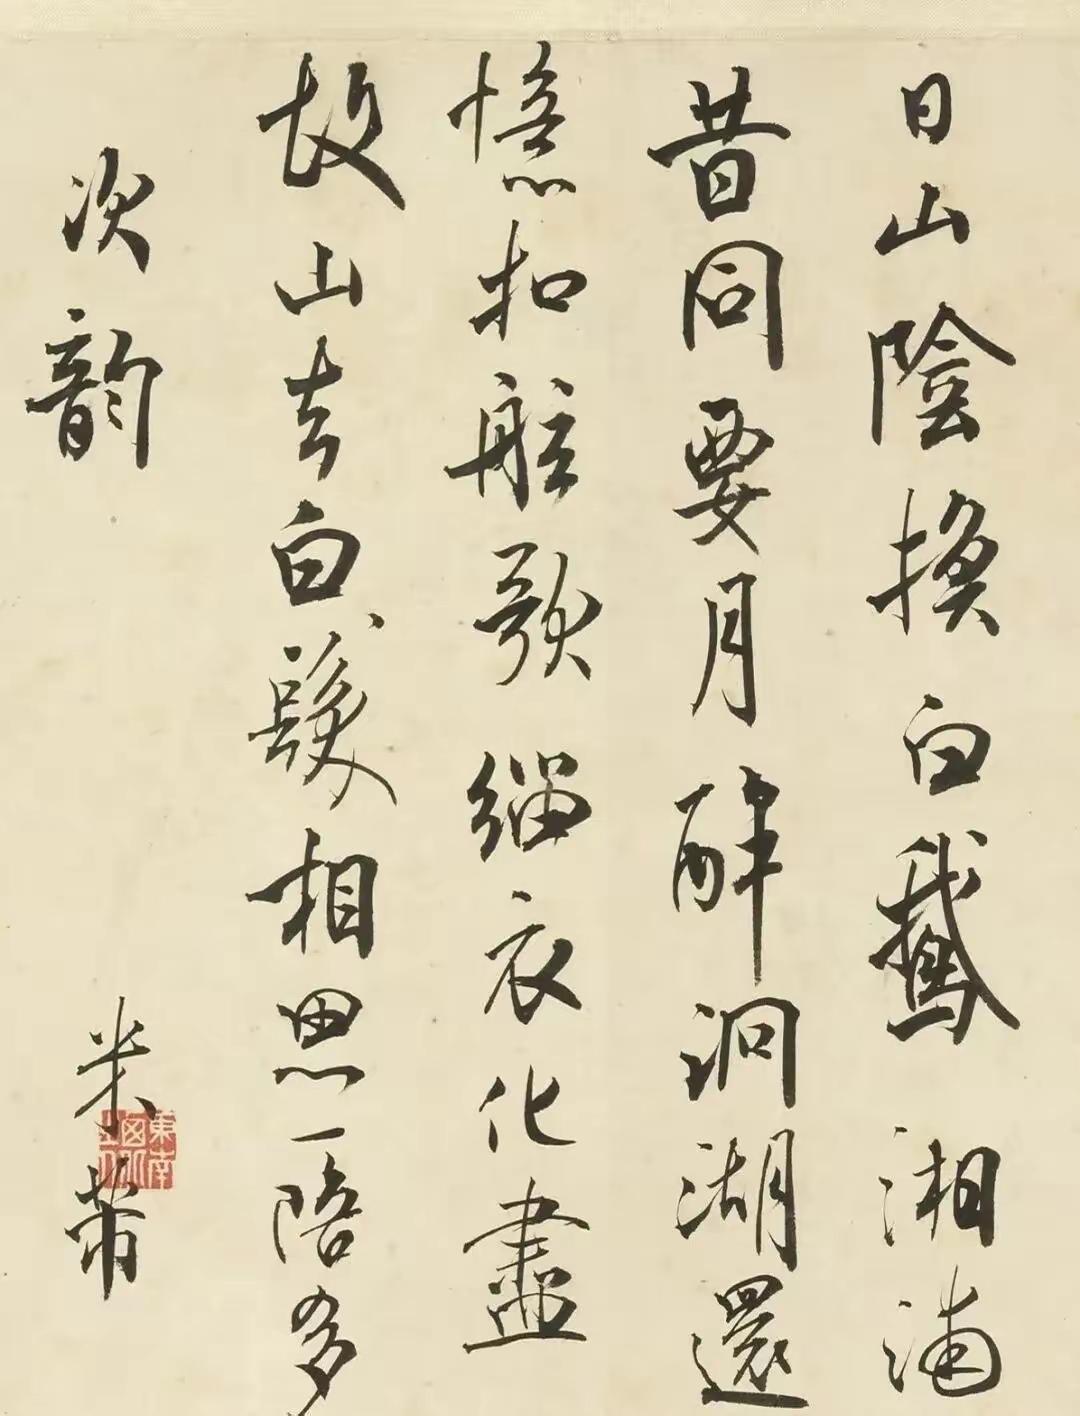 日山陰換白鵝湘浦
昔同要月醉洞湖還
憶扣舷歌緇衣化盡
故山去白髮相思一陪多
次韻
米芾
東南